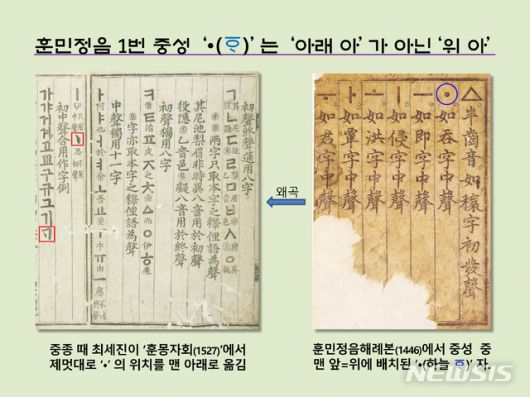 훈민정음 1번 중성 ‘•( )’는 ‘아래 아’가 아닌 ‘위 아’
初聲終聲通用八字
ㄱ ㄴ ㄷ ㄹ ㅁ ㅂ ㅅ ㆁ
兩字只取本字之釋俚語爲聲
其尼池梨眉非時異八音用於初聲
役隱 乙音邑 凝八音用於終聲
初聲獨用八字
ㅋ ㅌ治 ㅍ皮 ㅈ之 ㅊ ㅿ而 ㅇ伊 ㅎ屎
字亦取本字之釋俚語爲聲
中聲獨用十一字
ㅏ阿 ㅑ也 ㅓ於 ㅕ余 ㅗ吾 ㅛ要 ㅜ牛 ㅠ由 ㅡ
ㅣ
初中聲合用作字例
가갸거겨고교구규그기ᄀᆞ
왜곡
ㅿ半齒音如穰字初發聲
• 如呑字中聲
ㅡ 如即字中聲
ㅣ 如侵字中聲
ㅗ 如洪字中聲
ㅏ 如覃字中聲
ㅜ 如君字中聲
중종 때 최세진이 ‘훈몽자회(1527)’에서
제멋대로 ‘•’ 의 위치를 맨 아래로 옮김
훈민정음해례본(1446)에서 중성 중
맨 앞=위에 배치된 ‘•(하늘 )’ 자.
NEWSIS